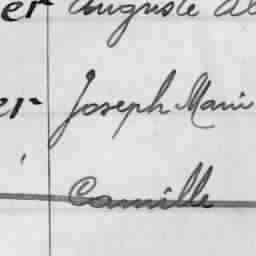 er Auguste Al
er Joseph Marie
Camille